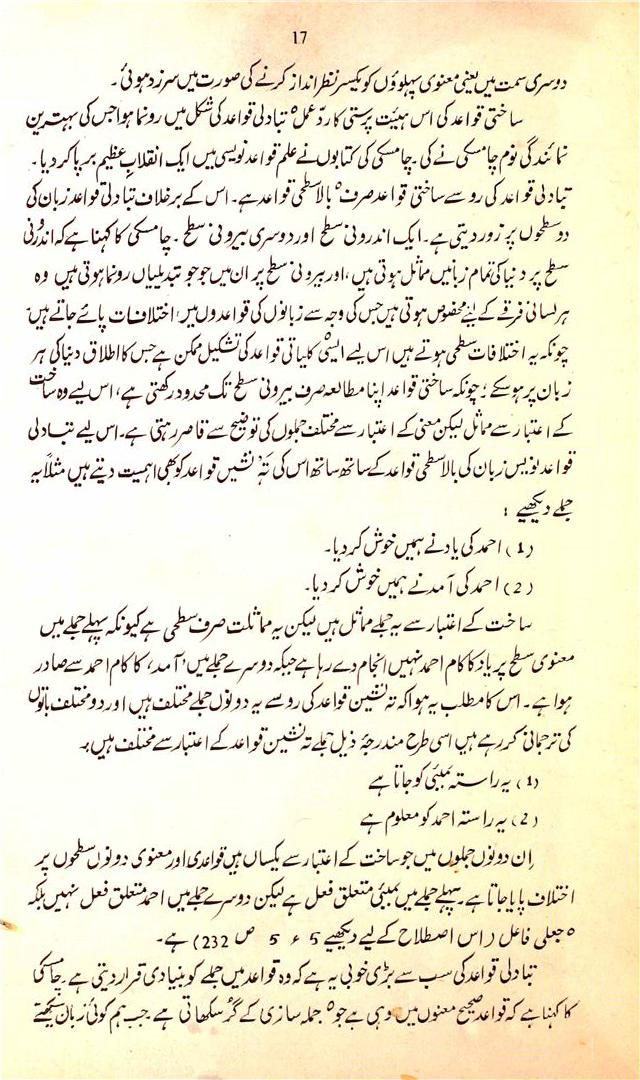 17
دوسری سمت میں یعنی معنوی پہلوؤں کو یکسر نظر انداز کرنے کی صورت میں سرزد ہوئی۔
ساختی قواعد کی اس ہیئت پرستی کا ردِّ عمل ٥ تبادلی قواعد کی شکل میں رونما ہوا جس کی بہترین
نمائندگی نوم چامسکی نے کی۔ چامسکی کی کتابوں نے علم قواعد نویسی میں ایک انقلابِ عظیم برپا کر دیا۔
تبادلی قواعد کی رو سے ساختی قواعد صرف ٥ بالا سطحی قواعد ہے۔ اس کے برخلاف تبادلی قواعد زبان کی
دو سطحوں پر زور دیتی ہے۔ ایک اندرونی سطح اور دوسری بیرونی سطح۔ چامسکی کا کہنا ہے کہ اندرونی
سطح پر دنیا کی تمام زبانیں مماثل ہوتی ہیں، اور بیرونی سطح پر ان میں جو جو تبدیلیاں رونما ہوتی ہیں وہ
ہر لسانی فرقے کے لیے مخصوص ہوتی ہیں جس کی وجہ سے زبانوں کی قواعدوں میں اختلافات پائے جاتے ہیں
چونکہ یہ اختلافات سطحی ہوتے ہیں اس لیے ایسی ٥ کلیاتی قواعد کی تشکیل ممکن ہے جس کا اطلاق دنیا کی ہر
زبان پر ہو سکے؛ چونکہ ساختی قواعد اپنا مطالعہ صرف بیرونی سطح تک محدود رکھتی ہے، اس لیے وہ ساخت
کے اعتبار سے مماثل لیکن معنی کے اعتبار سے مختلف جملوں کی توضیح سے قاصر رہتی ہے۔ اس لیے تبادلی
قواعد نویس زبان کی بالا سطحی قواعد کے ساتھ ساتھ اس کی ٥ تہ نشیں قواعد کو بھی اہمیت دیتے ہیں مثلاً یہ
جملے دیکھیے :
(1) احمد کی یاد نے ہمیں خوش کر دیا۔
(2) احمد کی آمد نے ہمیں خوش کر دیا۔
ساخت کے اعتبار سے یہ جملے مماثل ہیں لیکن یہ مماثلت صرف سطحی ہے کیونکہ پہلے جملے میں
معنوی سطح پر یاد کا کام احمد نہیں انجام دے رہا ہے جبکہ دوسرے جملے میں 'آمد' کا کام احمد سے صادر
ہوا ہے۔ اس کا مطلب یہ ہوا کہ تہ نشین قواعد کی رو سے یہ دونوں جملے مختلف ہیں اور دو مختلف باتوں
کی ترجمانی کر رہے ہیں اسی طرح مندرجۂ ذیل جملے تہ نشین قواعد کے اعتبار سے مختلف ہیں:۔
(1) یہ راستہ بمبئی کو جاتا ہے
(2) یہ راستہ احمد کو معلوم ہے
اِن دونوں جملوں میں جو ساخت کے اعتبار سے یکساں ہیں قواعدی اور معنوی دونوں سطحوں پر
اختلاف پایا جاتا ہے۔ پہلے جملے میں بمبئی متعلق فعل ہے لیکن دوسرے جملے میں احمد متعلق فعل نہیں بلکہ
٥ جعلی فاعل (اس اصطلاح کے لیے دیکھیے 5 ء 5 ص 232) ہے۔
تبادلی قواعد کی سب سے بڑی خوبی یہ ہے کہ وہ قواعد میں جملے کو بنیادی قرار دیتی ہے۔ چامسکی
کا کہنا ہے کہ قواعد صحیح معنوں میں وہی ہے جو ٥ جملہ سازی کے گُر سکھاتی ہے جب ہم کوئی زبان سیکھتے